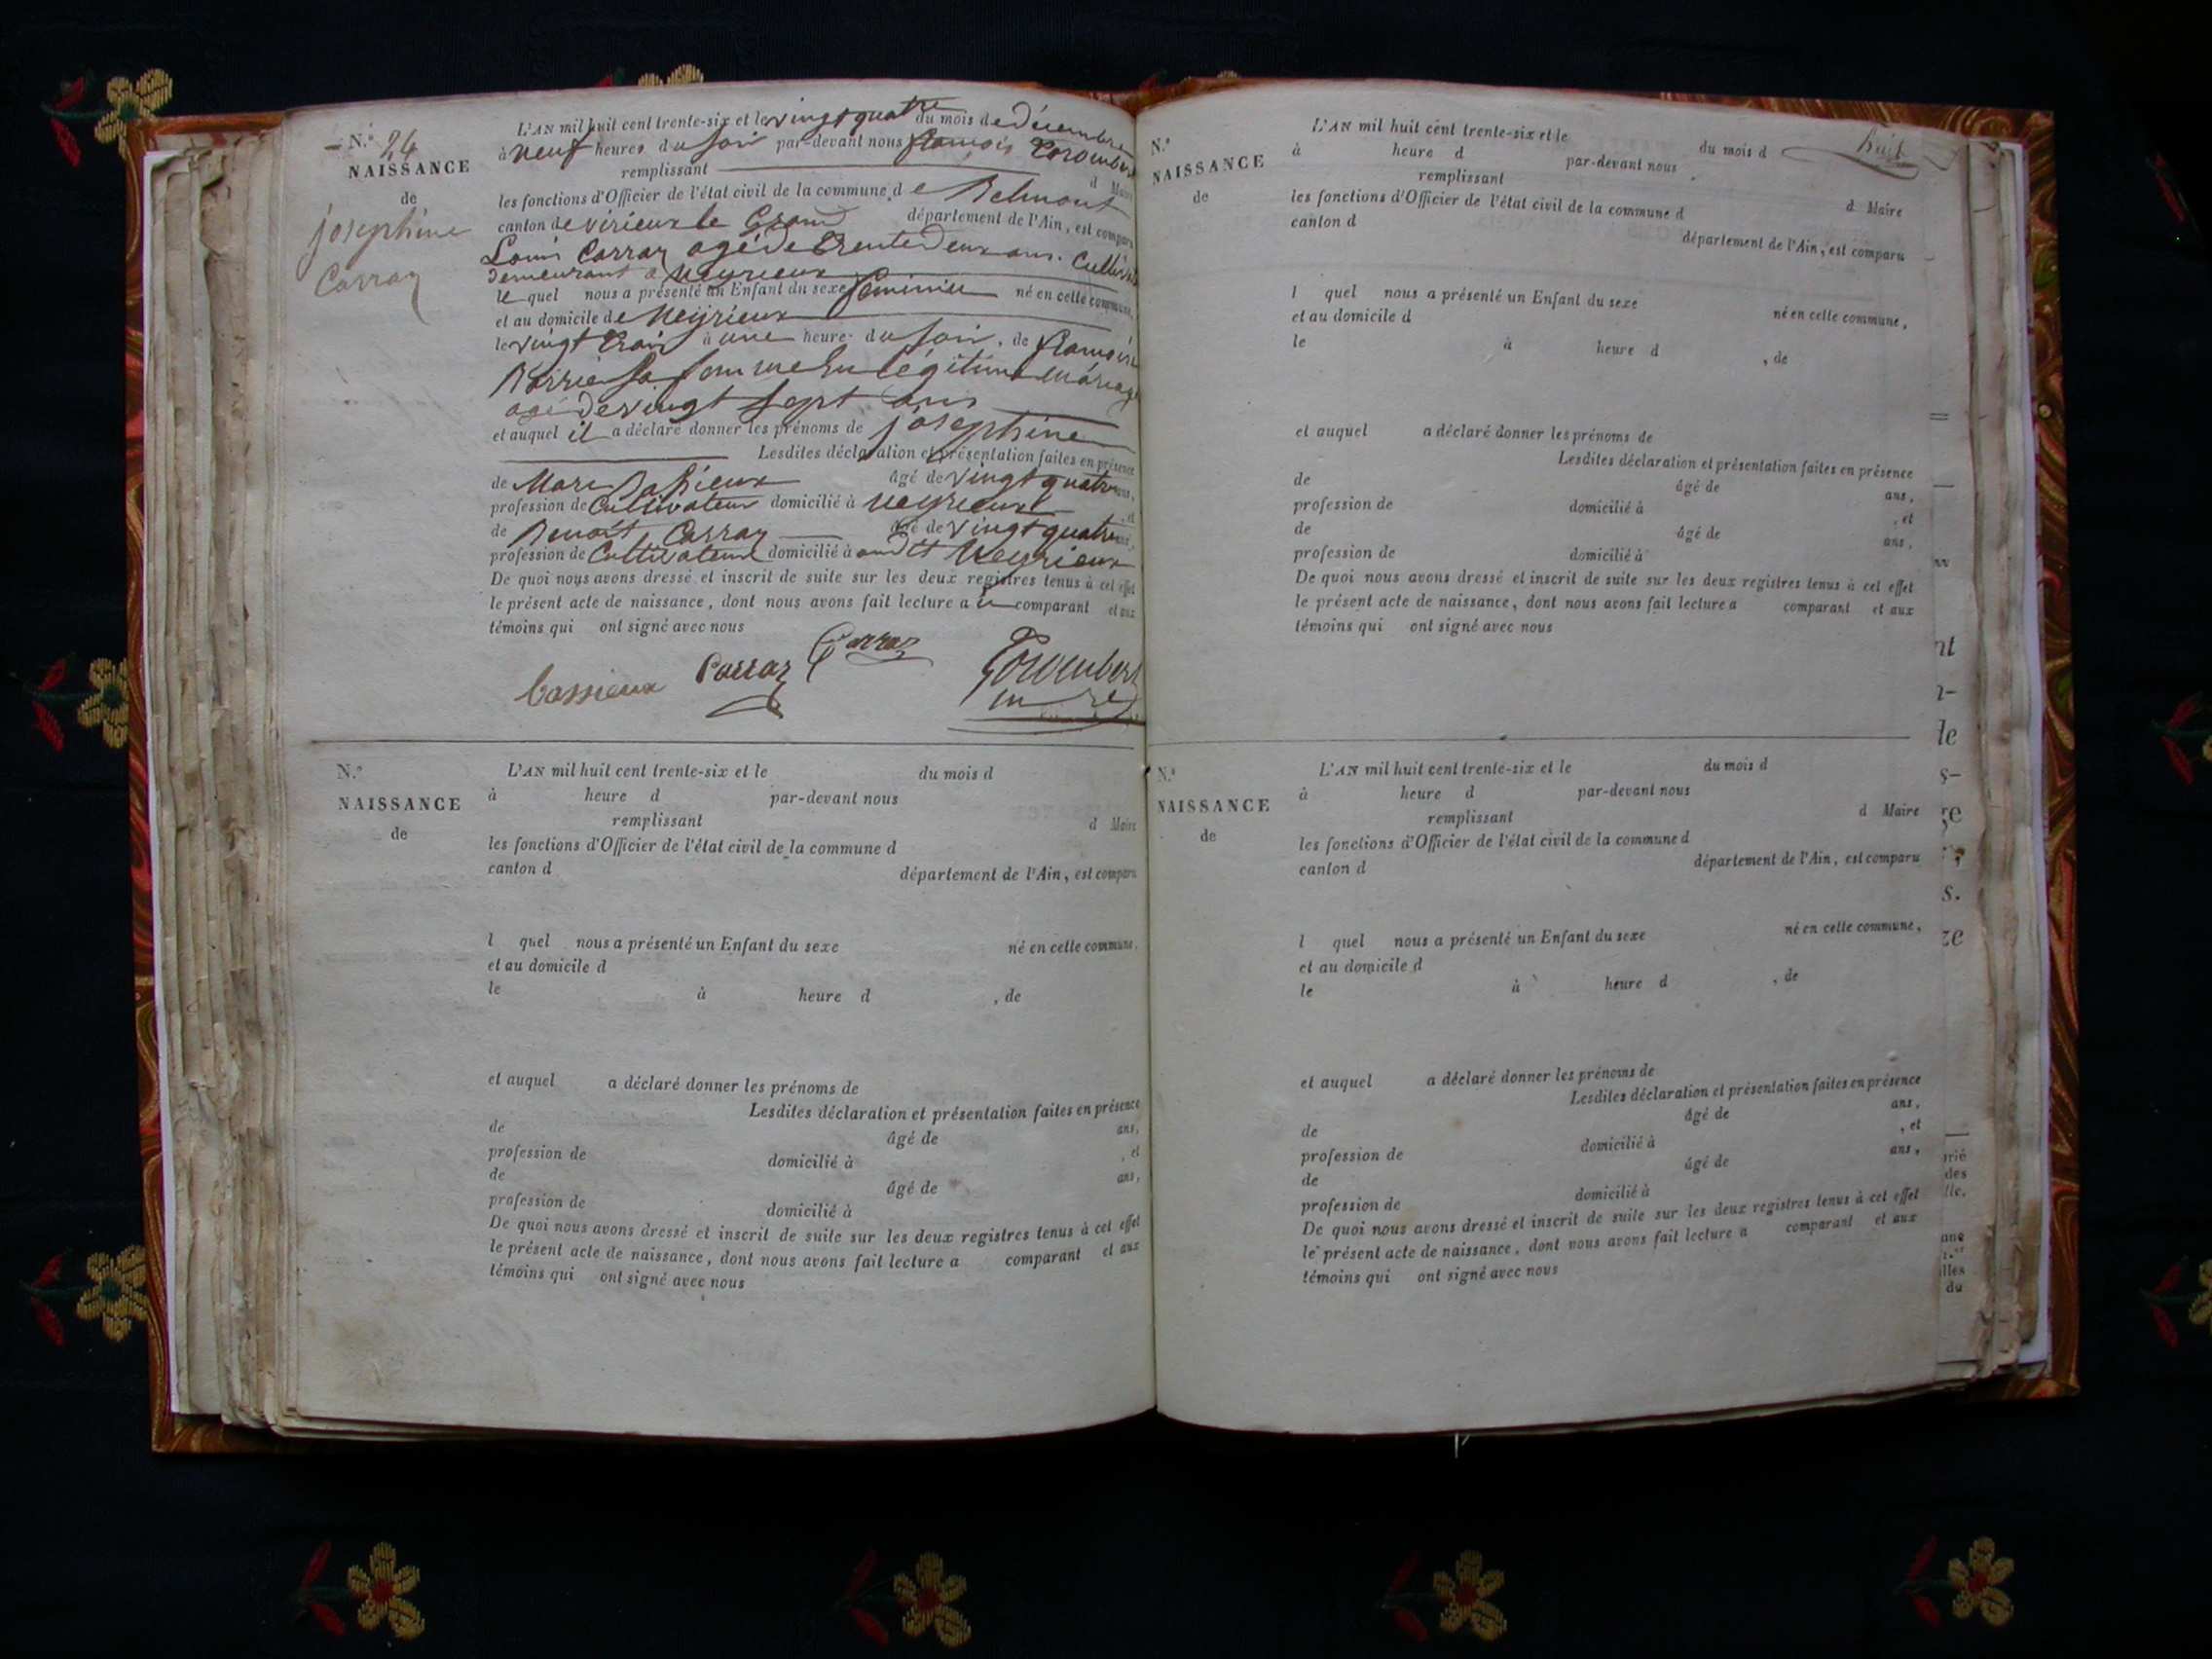 N.° 24
NAISSANCE
de
josephine
Carraz
L'AN mil huit cent trente-six et le vingt quatre du mois de décembre
à neuf heures du soir par-devant nous françois Coromber
remplissant d Maire
les fonctions d'Officier de l'état civil de la commune de Belmont
canton de virieux le Grand département de l'Ain, est comparu
Louis Carraz agé de trente deux ans. Cultiv
demeurant a Neyrieux
le quel nous a présenté un Enfant du sexe feminin né en cette commune,
et au domicile de Neyrieux
le vingt trois à une heure du soir, de françoise
sa femme en légitime mariage
agé de vingt sept ans
et auquel il a déclaré donner les prénoms de josephine
Lesdites déclaration et présentation faites en présence
de âgé de vingt quatre ans,
profession de Cultivateur domicilié à Neyrieux, et
de Benoit Carraz âgé de vingt quatre ans,
profession de Cultivateur domicilié à Neyrieux
De quoi nous avons dressé et inscrit de suite sur les deux registres tenus à cet effet
le présent acte de naissance, dont nous avons fait lecture a comparant et aux
témoins qui ont signé avec nous
Cassieux Carraz Carraz Corombert
N.°
NAISSANCE
de
L'AN mil huit cent trente-six et le du mois d
à heure d par-devant nous
remplissant d Maire
les fonctions d'Officier de l'état civil de la commune d
canton d département de l'Ain, est comparu
l quel nous a présenté un Enfant du sexe né en cette commune,
et au domicile d
le à heure d , de
et auquel a déclaré donner les prénoms de
Lesdites déclaration et présentation faites en présence
de âgé de ans,
profession de domicilié à , et
de âgé de ans,
profession de domicilié à
De quoi nous avons dressé et inscrit de suite sur les deux registres tenus à cet effet
le présent acte de naissance, dont nous avons fait lecture a comparant et aux
témoins qui ont signé avec nous
huit
N.°
NAISSANCE
de
L'AN mil huit cent trente-six et le du mois d
à heure d par-devant nous
remplissant d Maire
les fonctions d'Officier de l'état civil de la commune d
canton d département de l'Ain, est comparu
l quel nous a présenté un Enfant du sexe né en cette commune,
et au domicile d
le à heure d , de
et auquel a déclaré donner les prénoms de
Lesdites déclaration et présentation faites en présence
de âgé de ans,
profession de domicilié à , et
de âgé de ans,
profession de domicilié à
De quoi nous avons dressé et inscrit de suite sur les deux registres tenus à cet effet
le présent acte de naissance, dont nous avons fait lecture a comparant et aux
témoins qui ont signé avec nous
N.°
NAISSANCE
de
L'AN mil huit cent trente-six et le du mois d
à heure d par-devant nous
remplissant d Maire
les fonctions d'Officier de l'état civil de la commune d
canton d département de l'Ain, est comparu
l quel nous a présenté un Enfant du sexe né en cette commune,
et au domicile d
le à heure d , de
et auquel a déclaré donner les prénoms de
Lesdites déclaration et présentation faites en présence
de âgé de ans,
profession de domicilié à , et
de âgé de ans,
profession de domicilié à
De quoi nous avons dressé et inscrit de suite sur les deux registres tenus à cet effet
le présent acte de naissance, dont nous avons fait lecture a comparant et aux
témoins qui ont signé avec nous